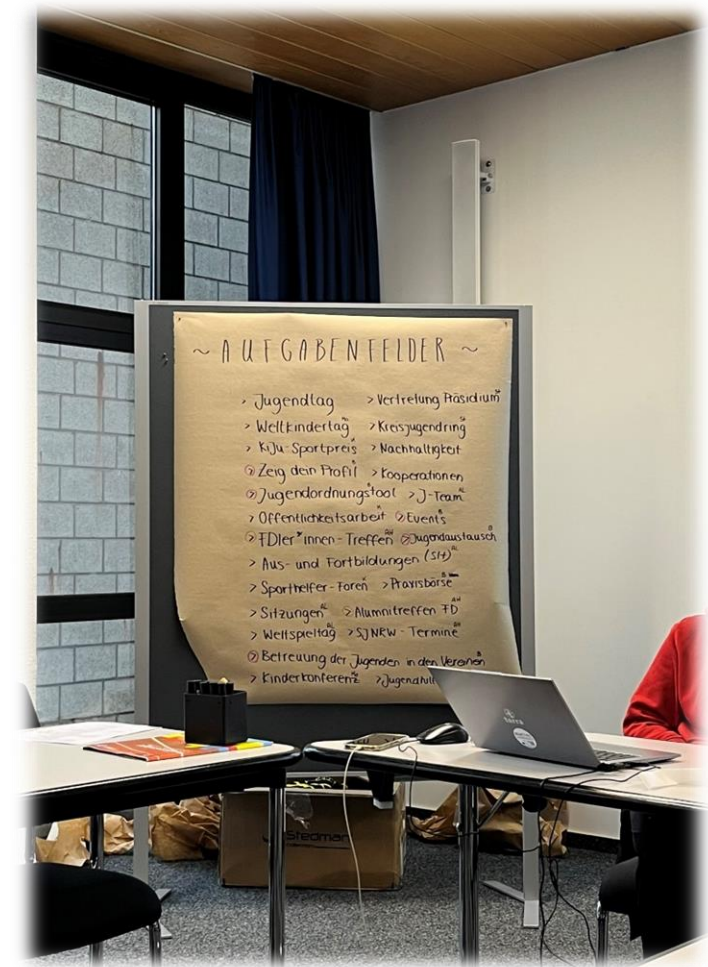 ~ AUFGABENFELDER ~
> Jugendtag > Vertretung Präsidium
> Weltkindertag > Kreisjugendring
> KiJu-Sportpreis > Nachhaltigkeit
> Zeig dein Profil > Kooperationen
> Jugendordnungstool > J-Team
> Öffentlichkeitsarbeit > Events
> FDler*innen-Treffen > Jugendaustausch
> Aus- und Fortbildungen (SH)
> Sporthelfer-Foren > Praxisbörse
> Sitzungen > Alumnitreffen FD
> Weltspieltag > SJNRW-Termine
> Betreuung der Jugenden in den Vereinen
> Kinderkonferenz
terra
Stedman